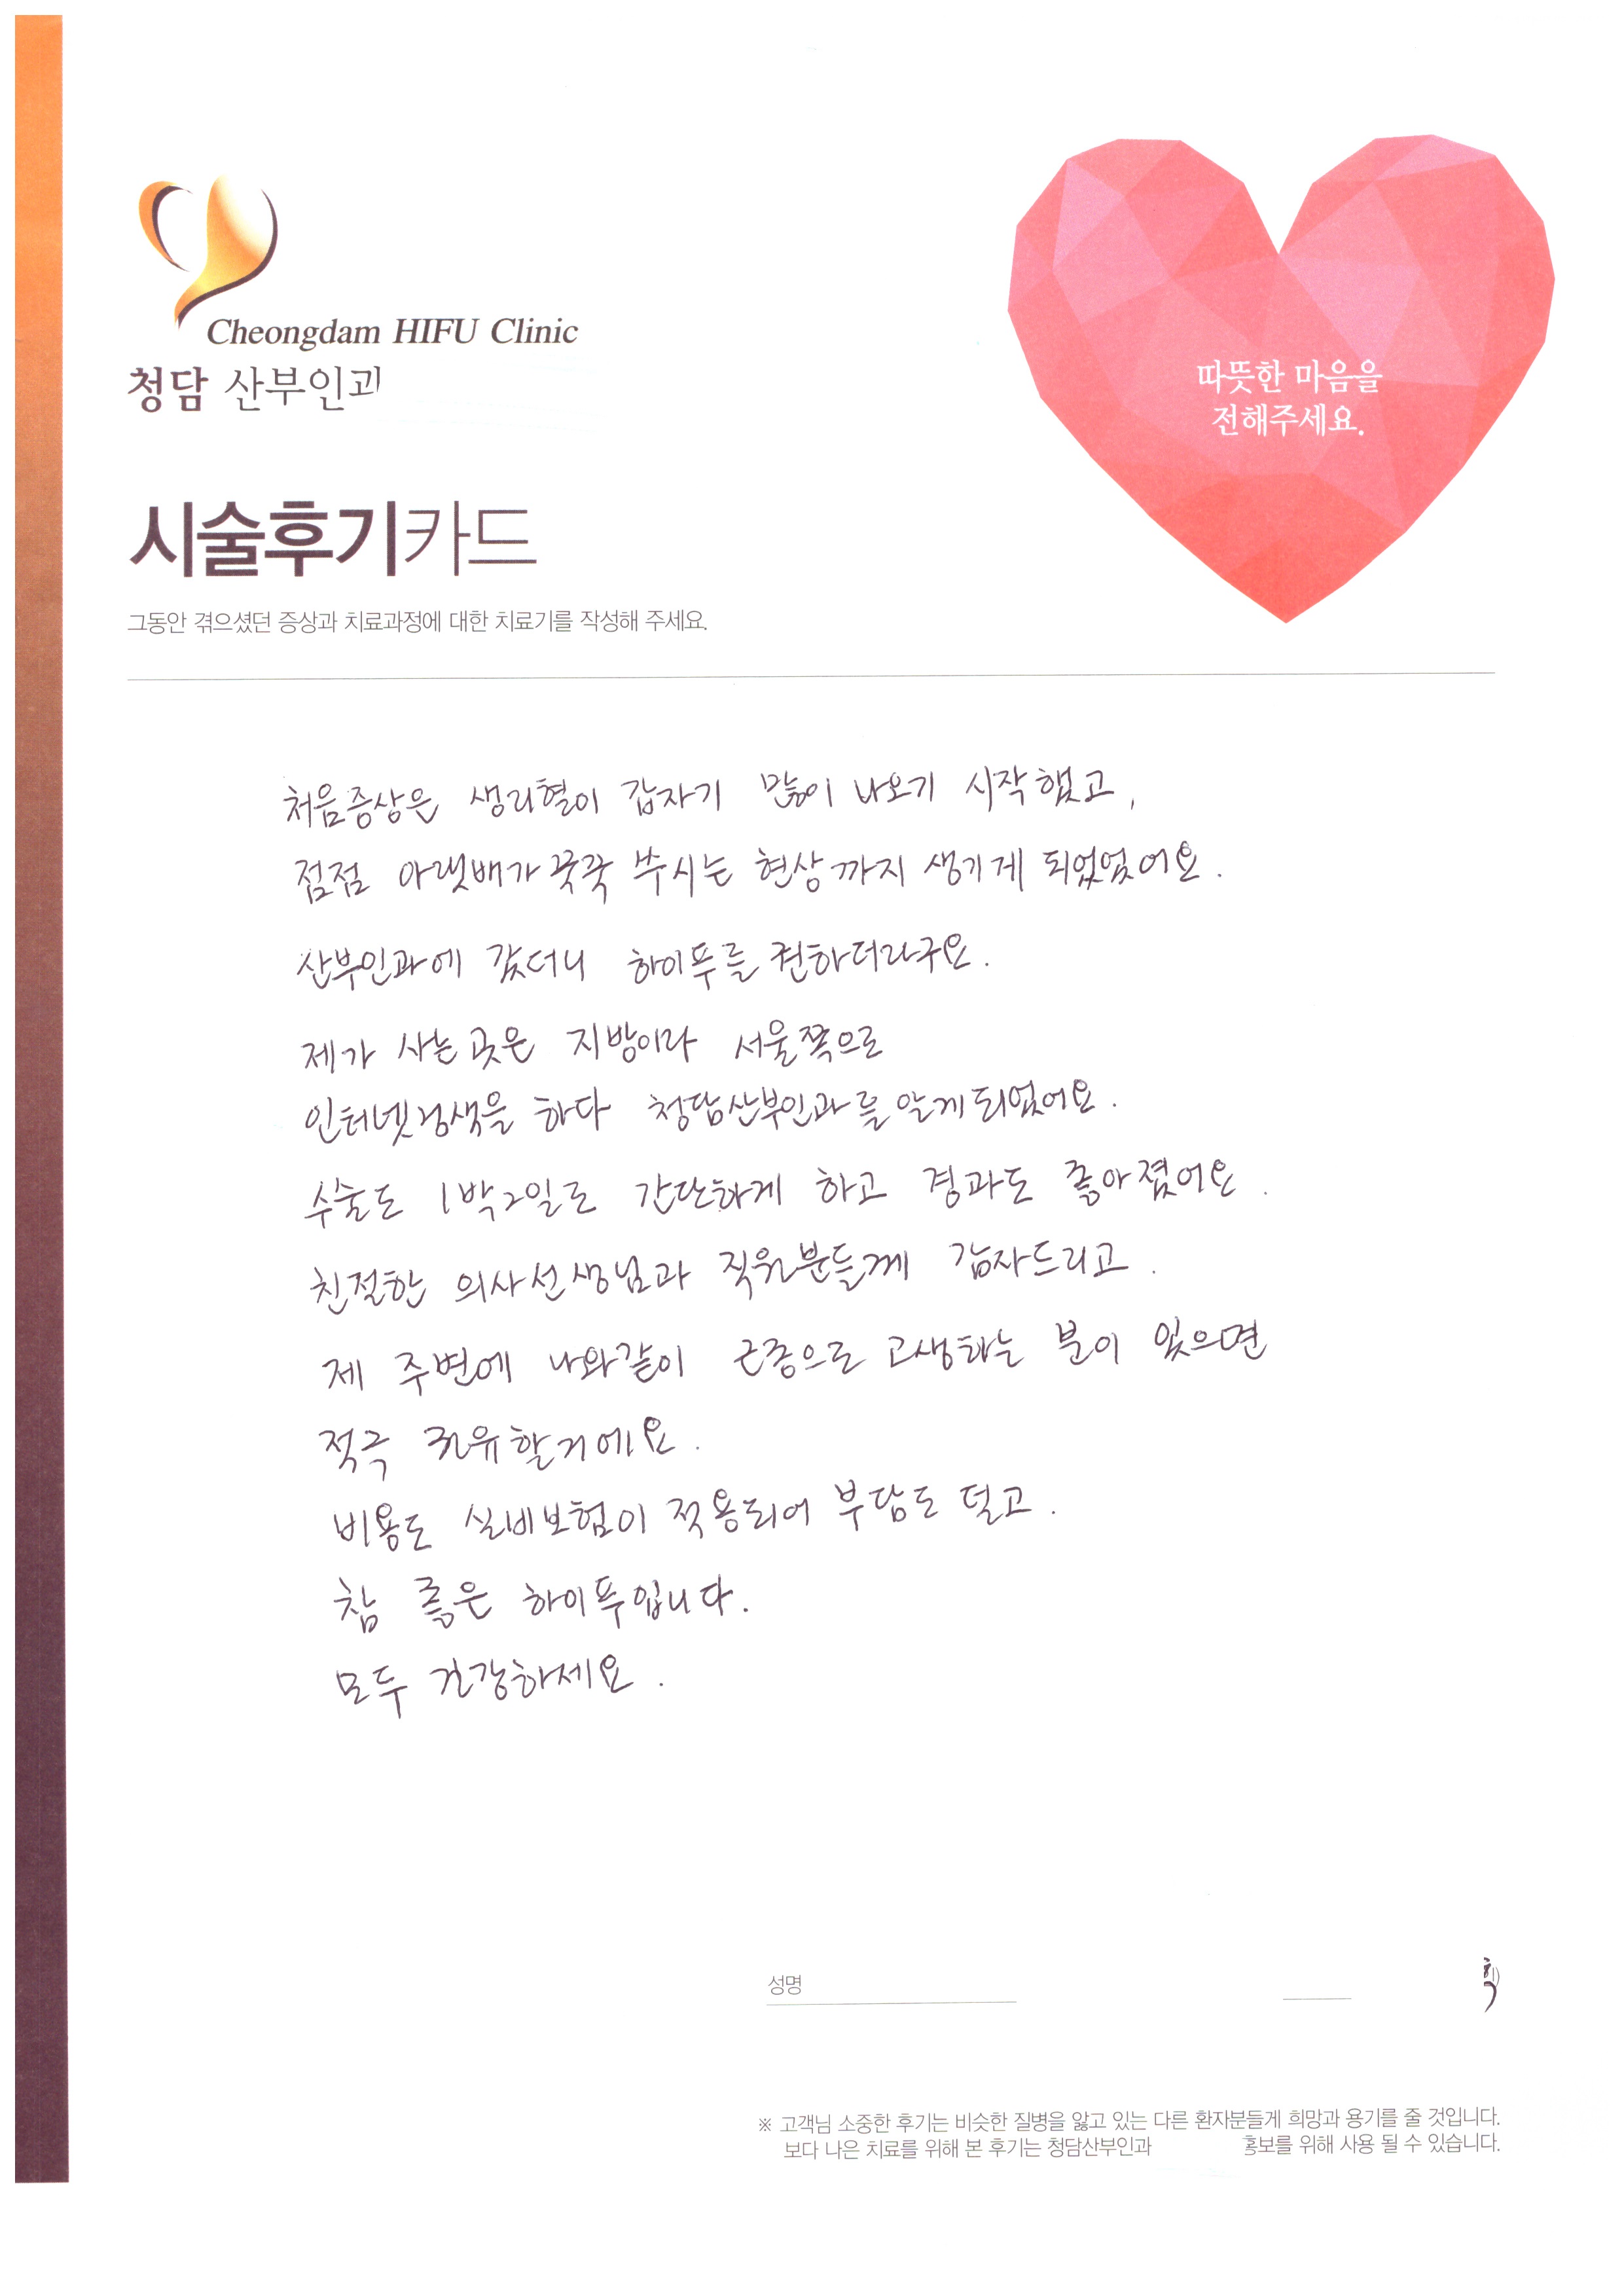 Cheongdam HIFU Clinic
청담 산부인과
따뜻한 마음을
전해주세요.
시술후기카드
그동안 겪으셨던 증상과 치료과정에 대한 치료기를 작성해 주세요.
처음증상은 생리혈이 갑자기 많이 나오기 시작했고,
점점 아랫배가 쿡쿡 쑤시는 현상까지 생기게 되었었어요.
산부인과에 갔더니 하이푸를 권하더라구요.
제가 사는 곳은 지방이라 서울쪽으로
인터넷검색을 하다 청담산부인과를 알게되었어요.
수술도 1박2일로 간단하게 하고 경과도 좋아졌어요.
친절한 의사선생님과 직원분들께 감사드리고.
제 주변에 나와같이 근종으로 고생하는 분이 있으면
적극 권유할거에요.
비용도 실비보험이 적용되어 부담도 덜고.
참 좋은 하이푸입니다.
모두 건강하세요.
성명
※ 고객님 소중한 후기는 비슷한 질병을 앓고 있는 다른 환자분들게 희망과 용기를 줄 것입니다.
보다 나은 치료를 위해 본 후기는 청담산부인과 홍보를 위해 사용 될 수 있습니다.